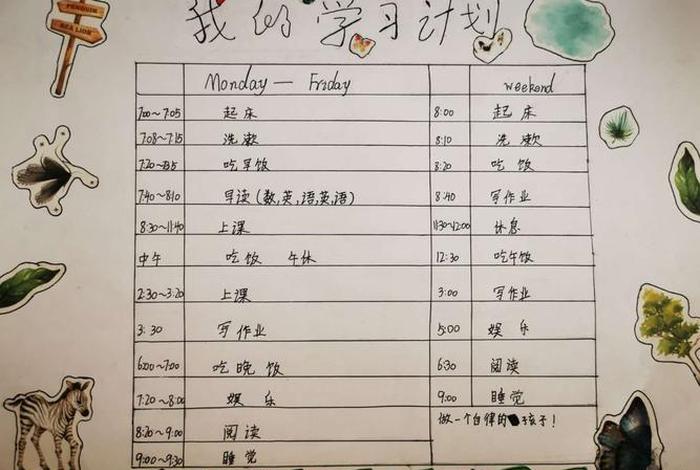 PENGUIN
SEA LION
我的学习计划
Monday — Friday weekend
7:00~7:05 起床 8:00 起床
7:08~7:15 洗漱 8:10 洗漱
吃早饭 8:20 吃饭
7:40~8:10 早读(数,英,语,英,语) 8:40 写作业
8:30~11:40 上课 11:30~12:00 休息
中午 吃饭 午休 12:30 吃午饭
2:30~3:20 上课 3:00 写作业
3:30 写作业 5:00 娱乐
6:00~7:00 吃晚饭 6:30 阅读
7:20~8:00 娱乐 9:00 睡觉
8:20~9:00 阅读 做一个自律的孩子!
9:00~9:30 睡觉